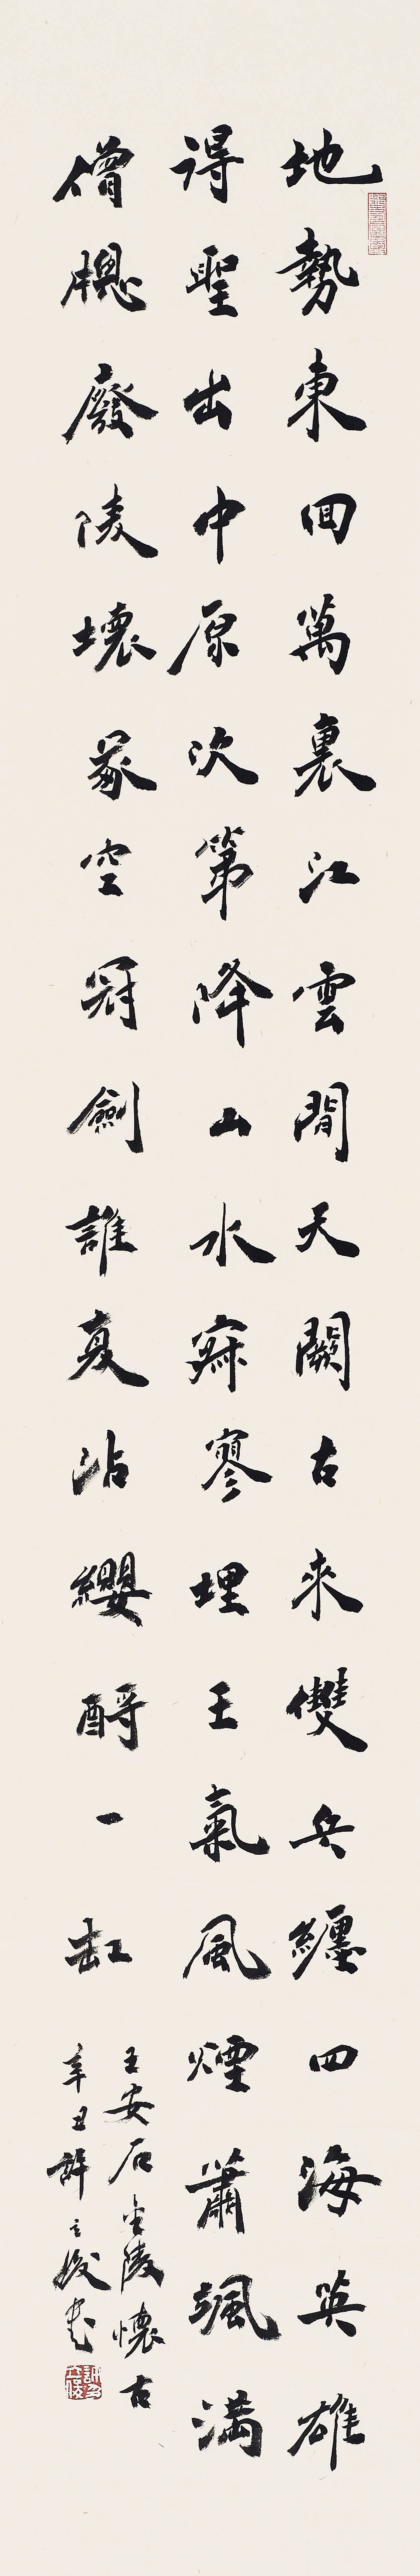 地勢東回萬裏江雲間天闕古來雙兵纏四海英雄
得聖出中原次第降山水寂寥埋王氣風煙蕭颯滿
僧牕廢陵壞冢空冠劍誰夏沾纓酹一缸
王安石金陵懷古
辛丑許
書